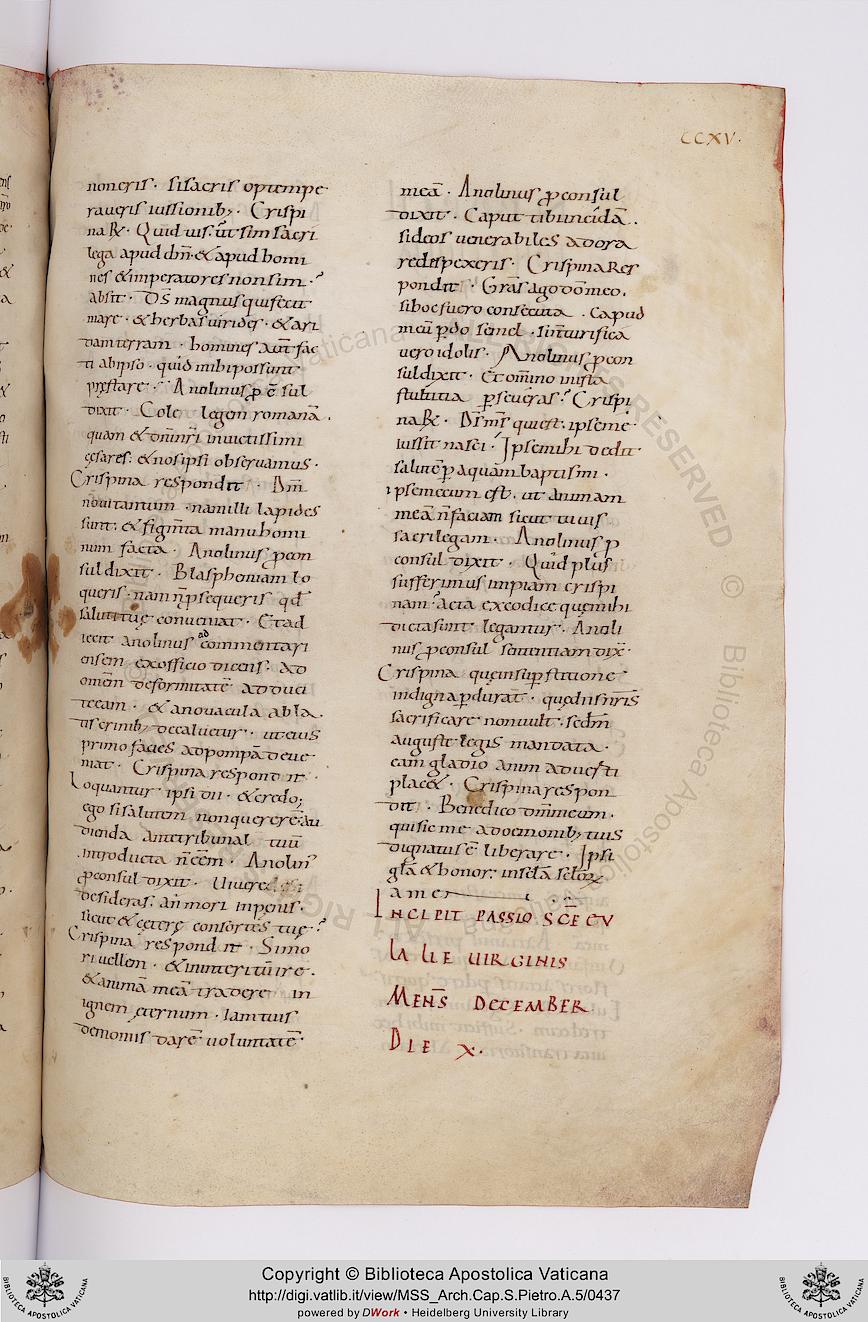 CCXV.
non eris. Si sacris optempe
raueris iussionib;. Crispi
na R̄. Quid uis. ut̄ sim sacri
lega apud dm̄. & apud homi
nes & imperatores non sim.
absit. D̄s magnus qui fecit
mare. & herbas uirides. & ari
dam terram. homines aut̄ fac
ti ab ipso. quid mihi possunt
prestare. Anolinus p̄ c̄ sul
dixit. Cole legem romanā.
quam & dn̄i nr̄i inuictissimi
cęsares. & nos ipsi obseruamus.
Crispina respondit. Dm̄
noui tantum. nam illi lapides
sunt. & figm̄ta manu homi
num facta. Anolinus p̄con
sul dixit. Blasphemiam lo
queris. nam n̄ p̄sequeris qd̄
saluti tuę conueniat. Et ad
iecit anolinus ad commentari
ensem ex officio dicens. Ad
om̄em deformitatē adduci
tecam. & a nouacula abla
tis crinib; decaluetur. ut eius
primo facies ad pompā deue
niat. Crispina respondit.
Loquantur ipsi dii. & credo;
ego si salutem non quererē. au
dienda ante tribunal tuū
introducta n̄ eēm. Anolin᾽
p̄consul dixit. Uiuere
desideras. an mori in penis.
sicut & cęterę consortes tuę?
Crispina respondit. Si mo
ri uellem. & in interitū ire.
& animā meā tradere in
ignem ęternum. iam tuis
demoniis darē uoluntatē.
meā. Anolinus p̄consul
dixit. Caput tibi incidā.
si deos uenerabiles adora
re despexeris. Crispina res
pondit. Gras̄ ago dō meo.
si hoc fuero consecuta. Capud
meū p̄do semel. si n̄ turifica
uero idolis. Anolinus p̄con
sul dixit. Et om̄ino in ista
stultitia p̄seueras? Crispi
na R̄. Ds̄ ms̄ qui est. ipse me
iussit nasci. Ipse mihi dedit
salutē p̄ aquam baptismi.
ipse mecum est. ut animam
meā n̄ faciam sicut tu uis
sacrilegam. Anolinus p̄
consul dixit. Quid plus
sufferimus impiam crispi
nam? acta ex codice quę mihi
dicta sunt legantur. Anoli
nus p̄consul sententiam dix̄.
Crispina quę in sup̄stitione
indigna p̄durat̄. quę diis nr̄is
sacrificare non uult. sedm̄
auguste legis mandata.
eam gladio anim aduerti
plac&. Crispina respon
dit. Benedico dm̄ meum.
qui sic me a demonib; tuis
dignatus ē liberare. Ipsi
gl̄a & honor. in secl̄a secl̄orꝝ
amen
INCIPIT PASSIO SC̄E EU
LALIE UIRGINIS
MENS̄ DECEMBER
DIE X.
Copyright © Biblioteca Apostolica Vaticana
http://digi.vatlib.it/view/MSS_Arch.Cap.S.Pietro.A.5/0437
powered by DWork • Heidelberg University Library